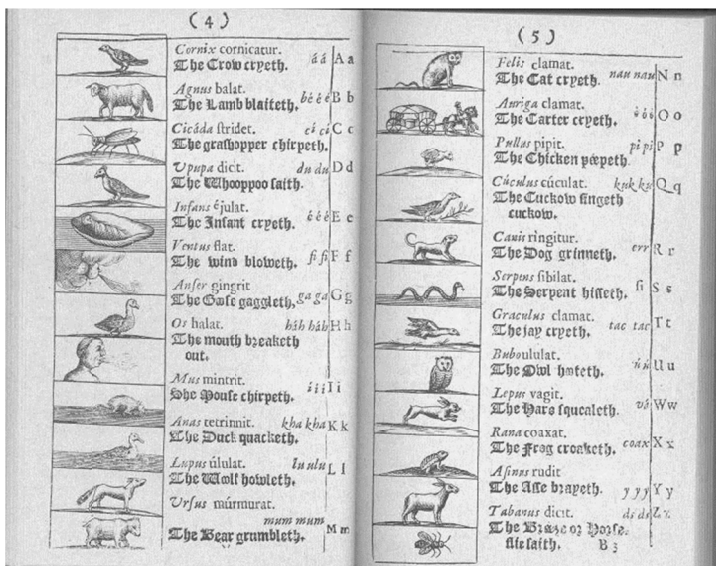 (4)
Cornix cornicatur. á á A a
The Crow cryeth.
Agnus balat. bé é é B b
The Lamb blaiteth.
Cicáda stridet. ci ci C c
The grashopper chirpeth.
Upupa dicit. du du D d
The Whooppoo saith.
Infans éjulat. é é é E e
The Infant cryeth.
Ventus flat. fi fi F f
The wind bloweth.
Anser gingrit ga ga G g
The Goose gaggleth,
Os halat. háh háh H h
The mouth breaketh
out.
Mus mintrit. í í í I i
The Mouse chirpeth.
Anas tetrinnit. kha kha K k
The Duck quacketh.
Lupus úlulat. lu ulu L l
The Wolf howleth.
Ursus múrmurat.
mum mum M m
The Bear grumbleth.
(5)
Felis clamat. nau nau N n
The Cat cryeth.
Auriga clamat. ó ó ó O o
The Carter cryeth.
Pullus pipit. pi pi P p
The Chicken peepeth.
Cúculus cúculat. kuk ku Q q
The Cuckow singeth
cuckow.
Canis ringitur. err R r
The Dog grinneth.
Serpens sibilat. si S s
The Serpent hisseth.
Graculus clamat. tac tac T t
The jay cryeth.
Bubo ululat. ú ú U u
The Owl hooteth.
Lepus vagit. vá W w
The Hare squeaketh.
Rana coaxat. coax X x
The Frog croaketh.
Asinus rudit y y y Y y
The Asse brayeth.
Tabanus dicit. ds ds Z z
The Breeze or Horse-
flie saith. B 3